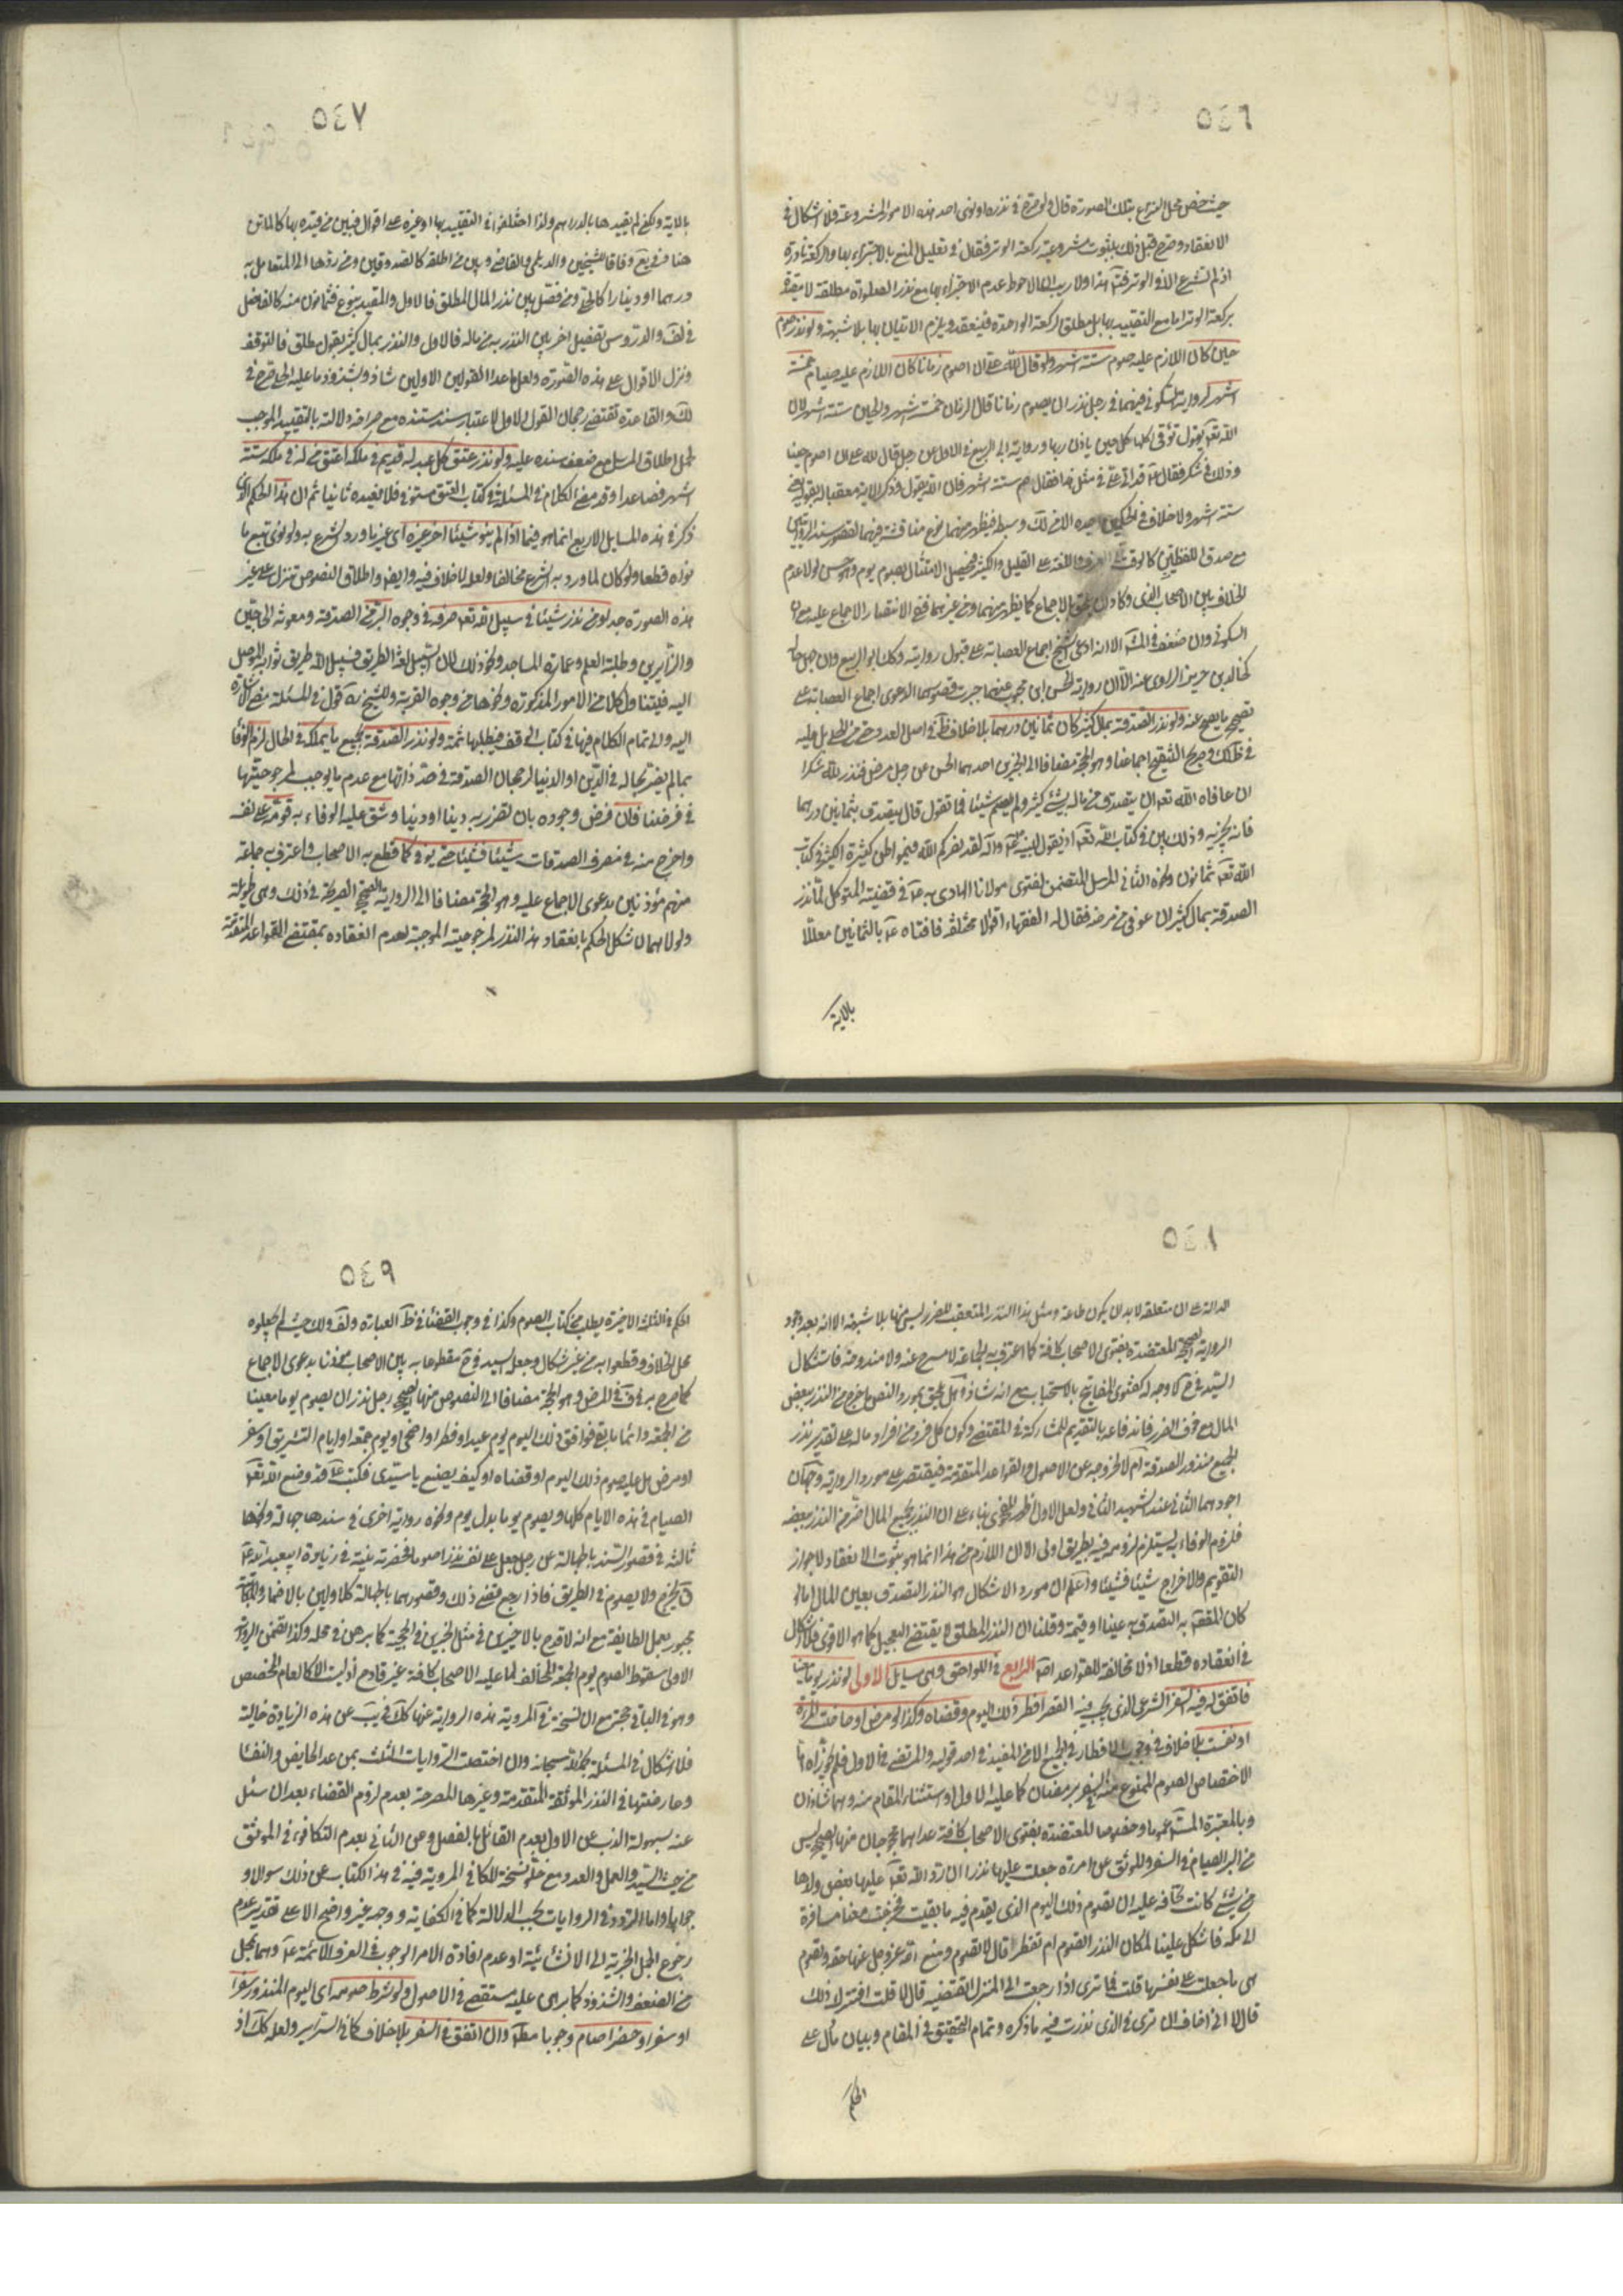 ٥٤٦
حيث خص محل النزاع بتلك الصورة قال ولو صرح في نذره او نوى احد هذه الامور المشروعة فلا اشكال في
الانعقاد وصرح قبل ذلك بثبوت مشروعية ركعة الوتر فقال في تعليل المنع بالاجتزاء بها والركعة نادرة
اذ لم تشرع الا في الوتر فتم هذا ولا ريب ان الاحوط عدم الاجتزاء بها مع نذر الصلوة مطلقة لا مقيدة
بركعة الوتر اما مع التقييد بها بل مطلق الركعة الواحدة فينعقد ويلزم الاتيان بها بلا شبهة ولو نذر صوم
حين كان اللازم عليه صوم ستة اشهر ولو قال لله علي ان اصوم زمانا كان اللازم عليه صيام خمسة
اشهر لرواية السكوني فيهما في رجل نذر ان يصوم زمانا قال الزمان خمسة اشهر والحين ستة اشهر لان
الله تعه يقول تؤتي اكلها كل حين باذن ربها ورواية ابي الربيع في الاول عن رجل قال لله علي ان اصوم حينا
وذلك في شكر فقال عه قد اتي علي في مثل هذا فقال صم ستة اشهر فان الله يقول وذكر الاية معقبا له بقوله يعني
ستة اشهر ولا خلاف في الحكمين اجده الا من لك وسبط فيظهر منهما نوع مناقشة فيهما لقصور سند الروايتين
مع صدق اللفظين كالوقت في العرف واللغة على القليل والكثير فيحصل الامتثال بصوم يوم وهو حسن لولا عدم
الخلاف بين الاصحاب الذي وكاد ان يلحق بالاجماع كما يظهر منهما ومن غيرهما ففي الانتصار الاجماع عليه مع ان
السكوني وان ضعف في المش الا انه ادعى الشيخ اجماع العصابة على قبول روايته وكك ابو الربيع وان جهل حاله
كخالد بن جرير الراوي عنه الا ان رواية الحسن ابن محبوب عنهما جبرت قصورهما لدعوى اجماع العصابة على
تصحيح ما يصح عنه ولو نذر الصدقة بمال كثير كان ثمانين درهما بلا خلاف ظ في اصل العدد حتى من الحلي بل عليه
في ظ لك وصريح التنقيح اجماعنا وهو الحجة مضافا الى الخبرين احدهما الحسن عن رجل مرض فنذر لله شكرا
ان عافاه الله تعه ان يتصدق من ماله بشيء كثير ولم يسم شيئا فما تقول قال يتصدق بثمانين درهما
فانه يجزيه وذلك بين في كتاب الله تعه اذ يقول لنبيه صلى الله عليه واله لقد نصركم الله في مواطن كثيرة والكثير في كتاب
الله تعه ثمانون ونحوه الثاني المرسل المتضمن لفتوى مولانا الهادي به عه في قضية المتوكل لما نذر
الصدقة بمال كثير ان عوفي من مرضه فقال له الفقهاء اقوالا مختلفة فافتاه عه بالثمانين معللا
بالاية
٥٤٧
بالاية ولكن لم يقيدها بالدرهم ولذا اختلفوا في التقييد بها او غيره على اقوال فبين من قيده بها كالماتن
هنا وفي يع وفاقا للشيخين والديلمي والقاضي وبين من اطلقه كالصدوقين ومن ردها الى المتعامل به
درهما او دينارا كالحلي ومن فصل بين نذر المال المطلق فالاول والمقيد بنوع فثمانون منه كالفاضل
في لف والدروس تفصيل اخر بين النذر به من ماله فالاول والنذر بمال كثير بقول مطلق فالتوقف
ونزل الاقوال على هذه الصورة ولعل ما عدا القولين الاولين شاذ ولشذوذ ما عليه الحلي صرح في
لك والقاعدة تقتضي رجحان القول الاول لاعتبار سند مستنده مع صراحة دلالته بالتقييد الموجب
لحمل اطلاق المرسل مع ضعف سنده عليه ولو نذر عتق كل عبد له قديم في ملكه اعتق من له في ملكه ستة
اشهر فصاعدا وقد مضى الكلام في المسئلة في كتاب العتق مستوفى فلا نعيده ثانيا ثم ان هذا الحكم الذي
ذكر في هذه المسايل الاربع انما هو فيما اذا لم ينو شيئا اخر غيره اي غير ما ورد الشرع به ولو نوى تبع ما
نواه قطعا ولو كان لما ورد به الشرع مخالفا ولعله لا خلاف فيه وايضا واطلاق النصوص تنزل على غير
هذه الصورة جدا ومن نذر شيئا في سبيل الله تعه صرفه في وجوه البر من الصدقة ومعونة الحاجين
والزائرين وطلبة العلم وعمارة المساجد ونحو ذلك لان السبيل لغة الطريق فسبيل الله طريق ثوابه الموصل
اليه فيتناول كلا من الامور المذكورة ونحوها من وجوه القربة وللشيخ ره قول في المسئلة مضى الاشارة
اليه والى تمام الكلام فيها في كتاب الوقف فيطلبها ثمة ولو نذر الصدقة بجميع ما يملكه في الحال لزم الوفا
بما لم يضر بحاله في الدين او الدنيا لرجحان الصدقة في حد ذاتها مع عدم ما يوجب لمرجوحيتها
في فرضنا فان فرض وجوده بان تضرر به دينا او دنيا وشق عليه الوفاء به قوم على نفسه
واخرج منه في مصرف الصدقات شيئا فشيئا حتى يوفي كما قطع به الاصحاب واعترف به جماعة
منهم مؤذنين بدعوى الاجماع عليه وهو الحجة مضافا الى الرواية الصحيح الصريحة في ذلك وهي طويلة
ولولاهما لاشكل الحكم بانعقاد هذا النذر لمرجوحيته الموجبة لعدم انعقاده بمقتضى القواعد المتقدمة
٥٤٨
الدالة على ان متعلقه لا بد ان يكون طاعة ومثل هذا النذر المتعقب للضرر ليس منها بلا شبهة الا انه بعد وجود
الرواية الصحيحة المعتضدة بفتوى الاصحاب كافة كما اعترف به الجماعة لا مسرح عنه ولا مندوحة فاستشكال
السيد في ح لا وجه له كفتوى المفاتيح بالاستحباب مع انه شاذ و هل يلحق بمورد النص ما خرج من النذر ببعض
المال مع خوف الضرر فاندفاعه بالتقويم للمشاركة في المقتضي وكون كل فرد من افراد ماله على تقدير نذر
الجميع منذور الصدقة ام لا لخروجه عن الاصول والقواعد المتقدمة فيقتصر على مورد الرواية وجهان
اجودهما الثاني عند الشهيد الثاني ولعل الاول اظهر للفحوى بناء على ان النذر بجميع المال اضر من النذر ببعضه
فلزوم الوفاء به يستلزم لزومه فيه بطريق اولى الا ان اللازم من هذا انما هو ثبوت الانعقاد لا جواز
التقويم والاخراج شيئا فشيئا واعلم ان مورد الاشكال هو النذر التصدق بعين المال اما لو
كان المقصد به التصدق به عينا او قيمة وقلنا ان النذر المطلق لا يقتضي التعجيل كما هو الاقوى فلا اشكال
في انعقاده قطعا اذ لا مخالفة للقواعد اصلا الرابع في اللواحق وهي مسايل الاولى لو نذر يوما معينا
فاتفق له فيه السفر الشرعي الذي يجب فيه القصر افطر ذلك اليوم وقضاه وكذا لو مرض او حاضت المرءة
او نفست بلا خلاف في وجوب الافطار في الجميع الا من المفيد في احد قوليه والمرتضى في الاول فلم يجوزاه اما
لاختصاص الصوم الممنوع منه في السفر برمضان كما عليه الاول او استثناء المقام منه وهما شاذان
وبالمعتبرة المستفيضة عموما وخصوصا المعتضدة بفتوى الاصحاب كافة عداهما محجوجان منها الصحيح ليس
من البر الصيام في السفر وللموثق عن امرءة جعلت عليها نذرا ان رد الله تعه عليها بعض ولدها
من شيء كانت تخاف عليه ان تصوم ذلك اليوم الذي يقدم فيه ما بقيت فخرجت معنا مسافرة
الى مكة فاشكل علينا لمكان النذر اتصوم ام تفطر قال لا تصوم وضع الله عز وجل عنها حقه وتصوم
هي ما جعلت على نفسها قلت فما ترى اذا رجعت الى المنزل اتقضيه قال لا قلت افتترك ذلك
قال لا اني اخاف ان ترى في الذي نذرت فيه ما تكره وتمام التحقيق في المقام وبيان ما دل على
الحكم
٥٤٩
الحكم في الثلثة الاخيرة يطلب من كتاب الصوم وكذا في وجوب القضاء في ظ العبارة ولف ولك حيث لم يجعلوه
محل الخلاف وقطعوا به من غير اشكال وجعله السيد في ح مقطوعا به بين الاصحاب مؤذنا بدعوى الاجماع
كما صرح به في ف في المرض وهو الحجة مضافا الى النصوص منها الصحيح رجل نذر ان يصوم يوما معينا
من الجمعة دائما ما بقي فوافق ذلك اليوم يوم عيد او فطر او اضحى او يوم جمعة او ايام التشريق او سفر
او مرض هل عليه صوم ذلك اليوم او قضاه او كيف يصنع يا سيدي فكتب عه قد وضع الله تعه
الصيام في هذه الايام كلها ويصوم يوما بدل يوم ونحوه رواية اخرى في سندها جهالة ونحوها
ثالثة في قصور السند بالجهالة عن رجل جعل على نفسه نذرا صوما فحضرته نية في زيارة ابي عبد الله عه
ق يخرج ولا يصوم في الطريق فاذا رجع قضى ذلك وقصورهما بالجهالة كالاولين بالاضمار والمكاتبة
مجبور بعمل الطايفة مع انه لا قدح بالاخيرين في مثل الخبرين في الحجية كما برهن في محله وكذا تضمن الرواية
الاولى سقوط الصوم يوم الجمعة المخالف لما عليه الاصحاب كافة غير قادح اذ ليست الا كالعام المخصص
وهو في الباقي حجة مع ان نسخة في المروية هذه الرواية عنها كك في يب عن هذه الزيادة خالية
فلا اشكال في المسئلة بحمد الله سبحانه وان اختصت الروايات الثلث بمن عدا الحايض والنفسا
ومعارضتها في النذر الموثقة المتقدمة وغيرها المصرحة بعدم لزوم القضاء بعد ان سئل
عنه بسهولة الذب عن الاول بعدم القائل بالفصل وعن الثاني بعدم التكافؤ في الموثق
من حيث السند والعمل والعدد مع خلو نسخة الكافي المروية فيه في هذا الكتاب عن ذلك سوالا و
جوابا واما التردد في الروايات بحسب الدلالة كما في الكفاية ووجهه غير واضح الا على تقدير عدم
رجوع الجمل الخبرية الى الانشائية او عدم افادة الامر الوجوب في العرف الائمة عه وهما بمحل
من الضعف والشذوذ كما برهن عليه مستقصى في الاصول ولو شرط صومه اي اليوم المنذور سفرا
او سفرا وحضرا صام وجوبا مط وان اتفق في السفر بلا خلاف كما في السرائر ولعله كك اذ